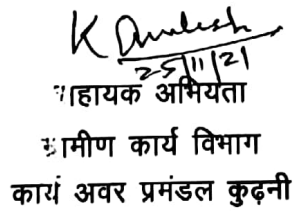 K Amlesh
25/11/21
सहायक अभियंता
ग्रामीण कार्य विभाग
कार्य अवर प्रमंडल कुढ़नी